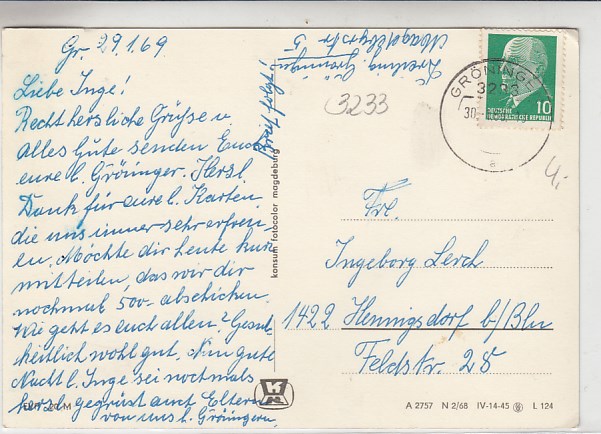 Gr. 29.1.69
Liebe Inge!
Recht herzliche Grüße u.
alles Gute senden Euch
eure l. Gröninger. Herzl.
Dank für eure l. Karten,
die uns immer sehr erfreu
en. Möchte dir heute kurz
mitteilen, das wir dir
nochmal 500,- abschicken.
Wie geht es euch allen? Gesund
heitlich wohl gut. Nun gute
Nacht l. Inge sei nochmals
herzl. gegrüßt auch Eltern
von uns l. Gröningern.
Gröningen
Magdeburgerstr. 5
konsum fotocolor magdeburg
3233
GRÖNINGEN
3233
30.
a
10
DEUTSCHE
DEMOKRATISCHE REPUBLIK
4,-
Frl.
Ingeborg Lerch
1422 Hennigsdorf b/Bln
Feldstr. 28
A 2757 N 2/68 IV-14-45 L 124